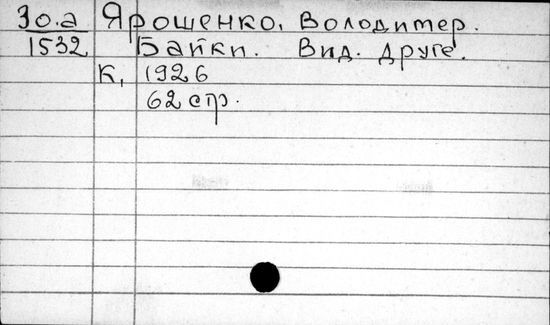 Зо.а Ярошенко, Володимер.
1532 Байки. Вид. друге.
К, 1926
62 стр.